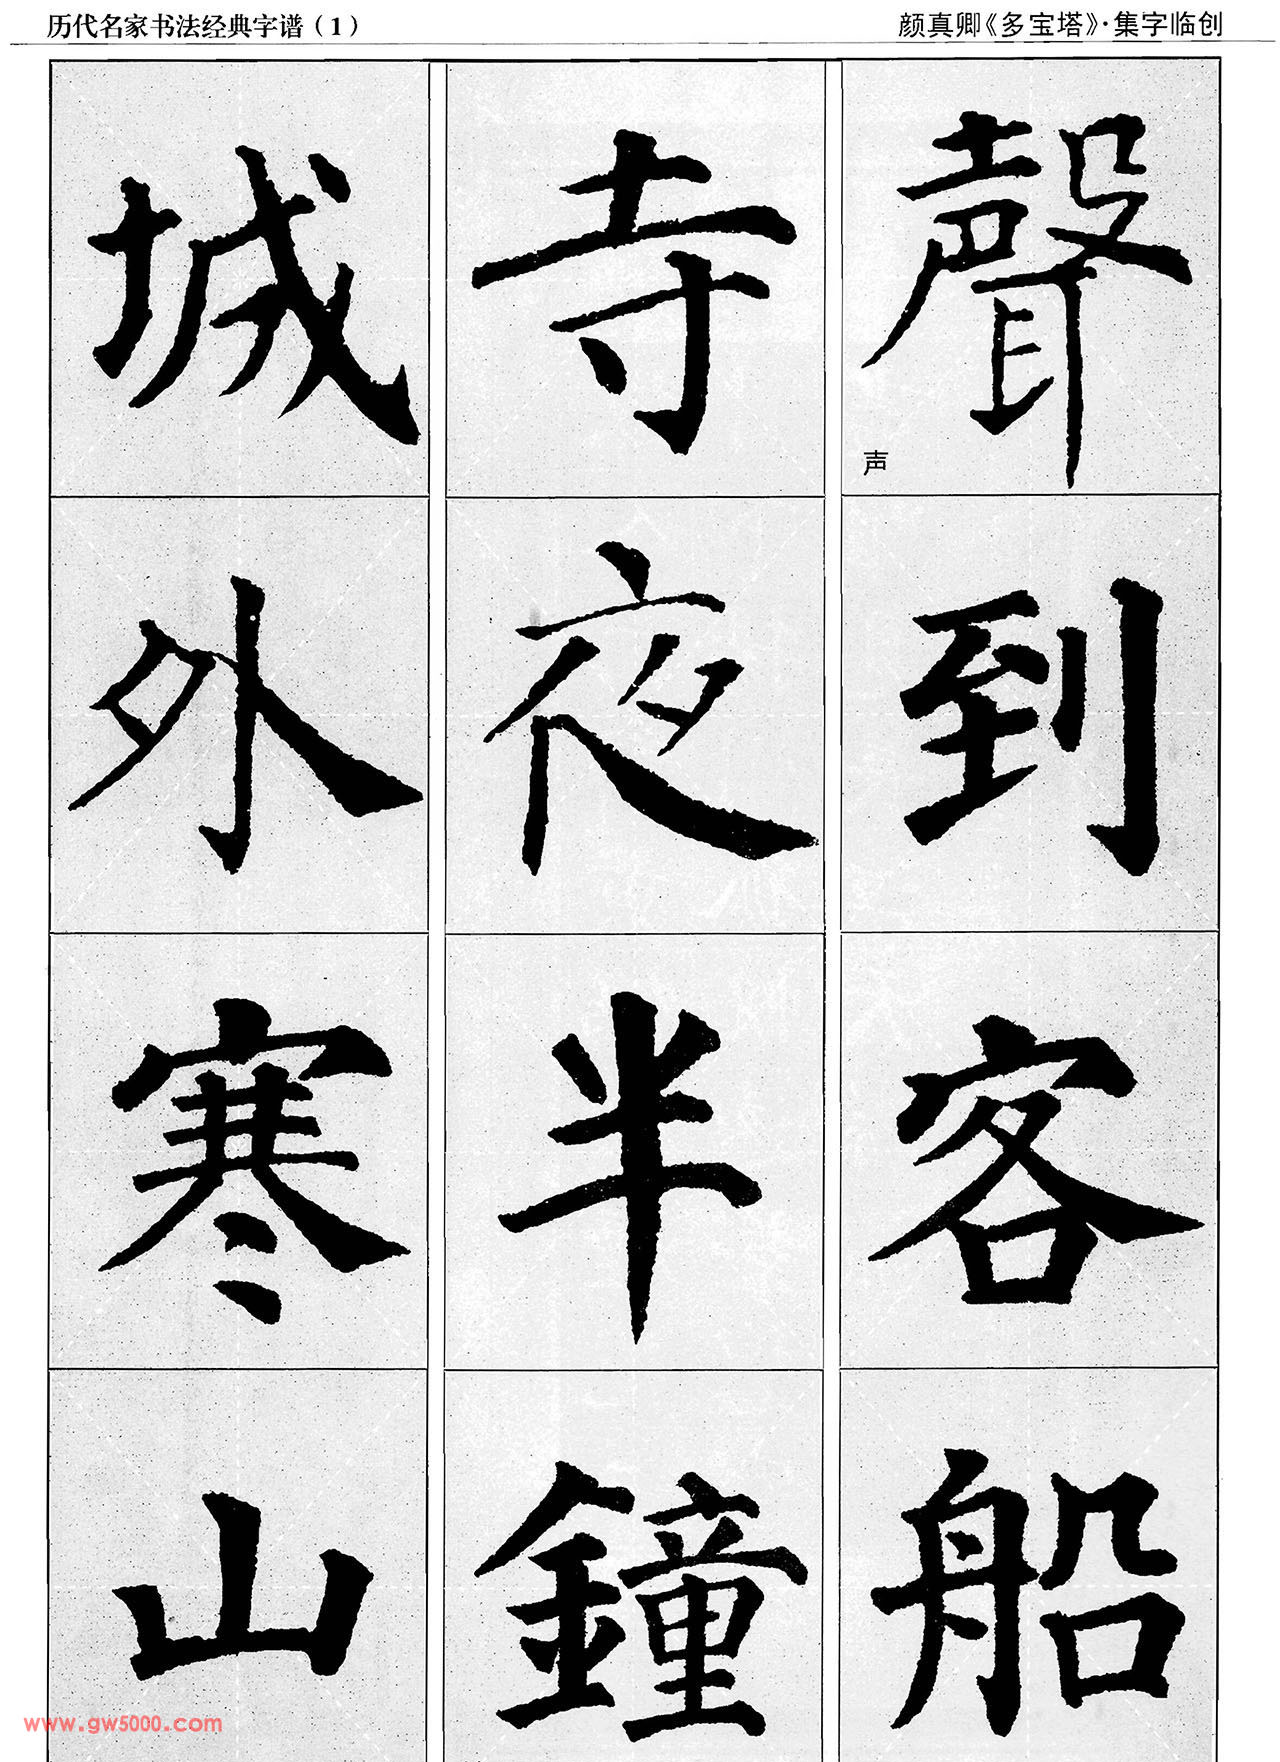 历代名家书法经典字谱（1）
颜真卿《多宝塔》·集字临创
聲到客船
声
寺夜半鐘
城外寒山
www.gw5000.com